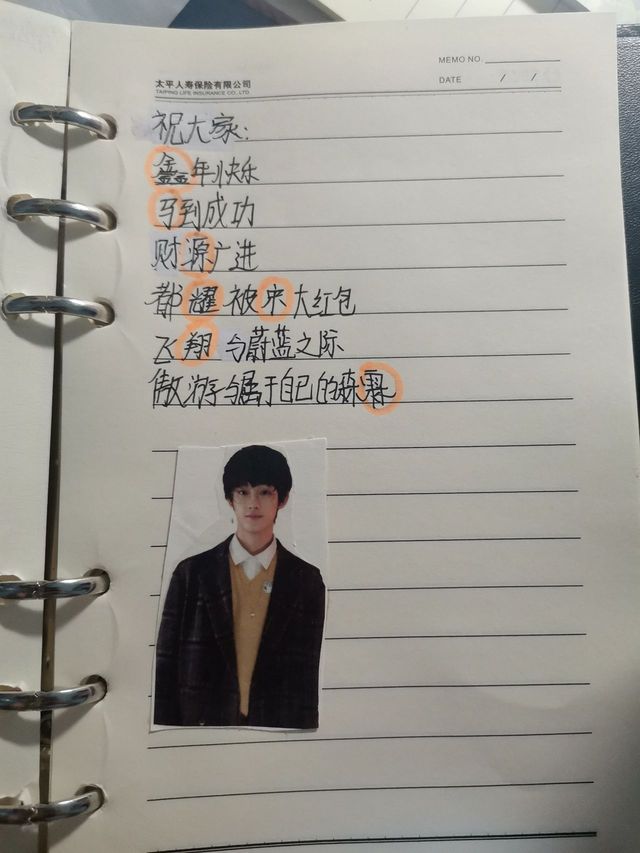 MEMO NO.
太平人寿保险有限公司
DATE / /
TAIPING LIFE INSURANCE CO., LTD.
祝大家:
鑫年快乐
马到成功
财源广进
都耀被宋大红包
飞翔与蔚蓝之际
傲游与属于自己的森霖